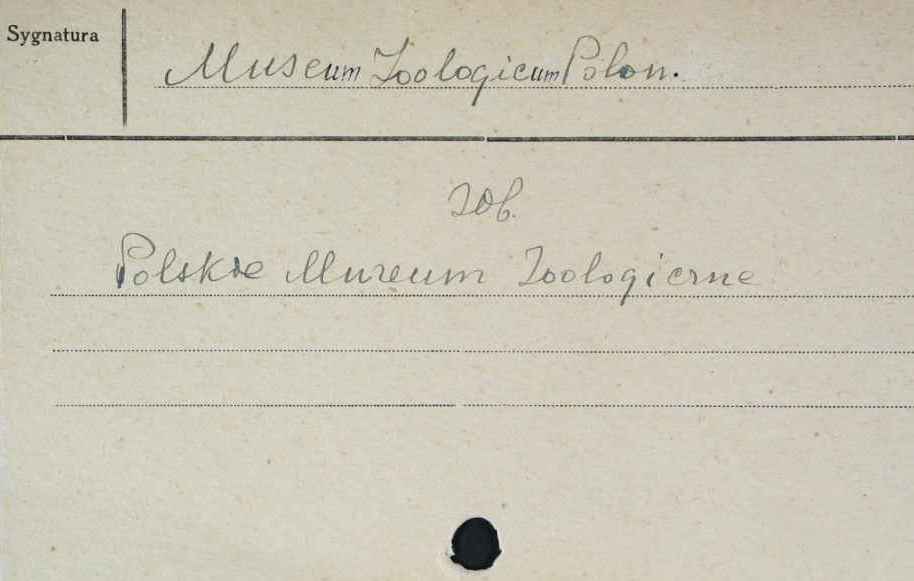 Sygnatura
Museum Zoologicum Polon.
zob.
Polskie Muzeum Zoologiczne